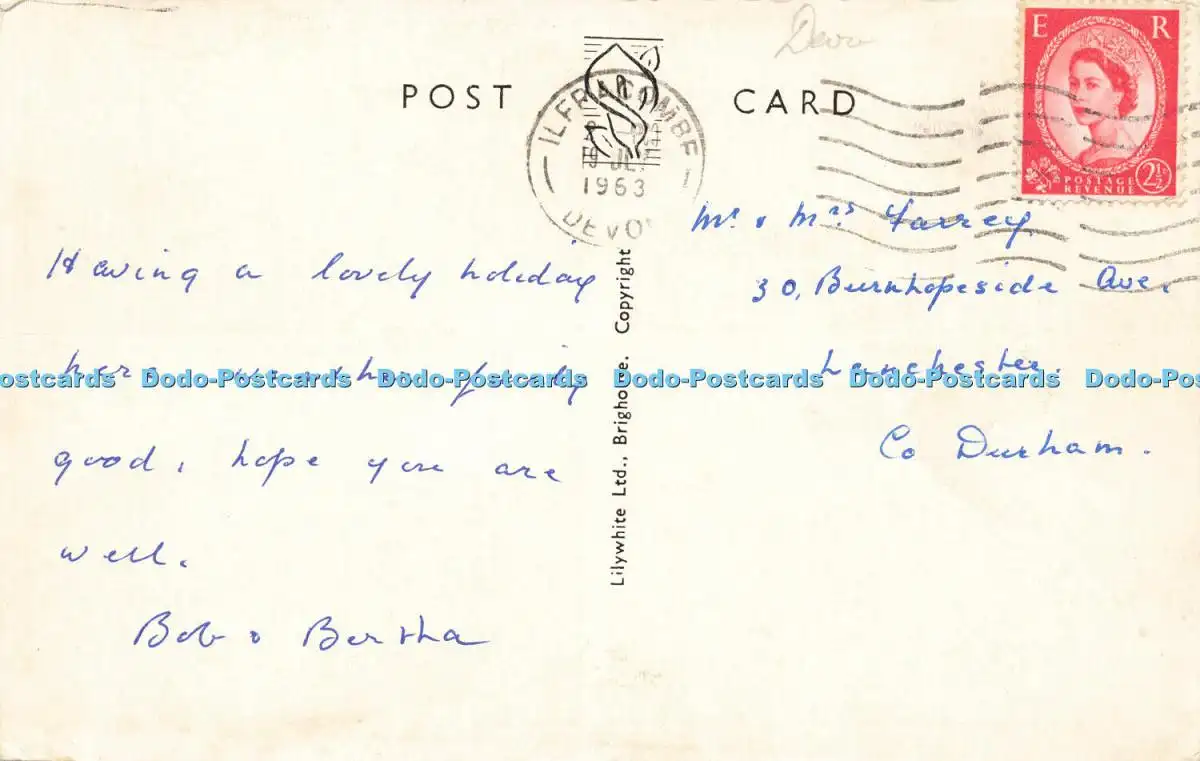 Devon
POST CARD
E R
POSTAGE
REVENUE
2½D
ILFRACOMBE
JLY
1963
DEVON
Mr. & Mrs Farrey,
30, Burnhopeside Ave.
Lanchester.
Co Durham.
Having a lovely holiday
here weather fairly
good, hope you are
well.
Bob & Bertha
Lilywhite Ltd., Brighouse. Copyright
Dodo-Postcards Dodo-Postcards Dodo-Postcards Dodo-Postcards Dodo-Postcards Dodo-Postcards